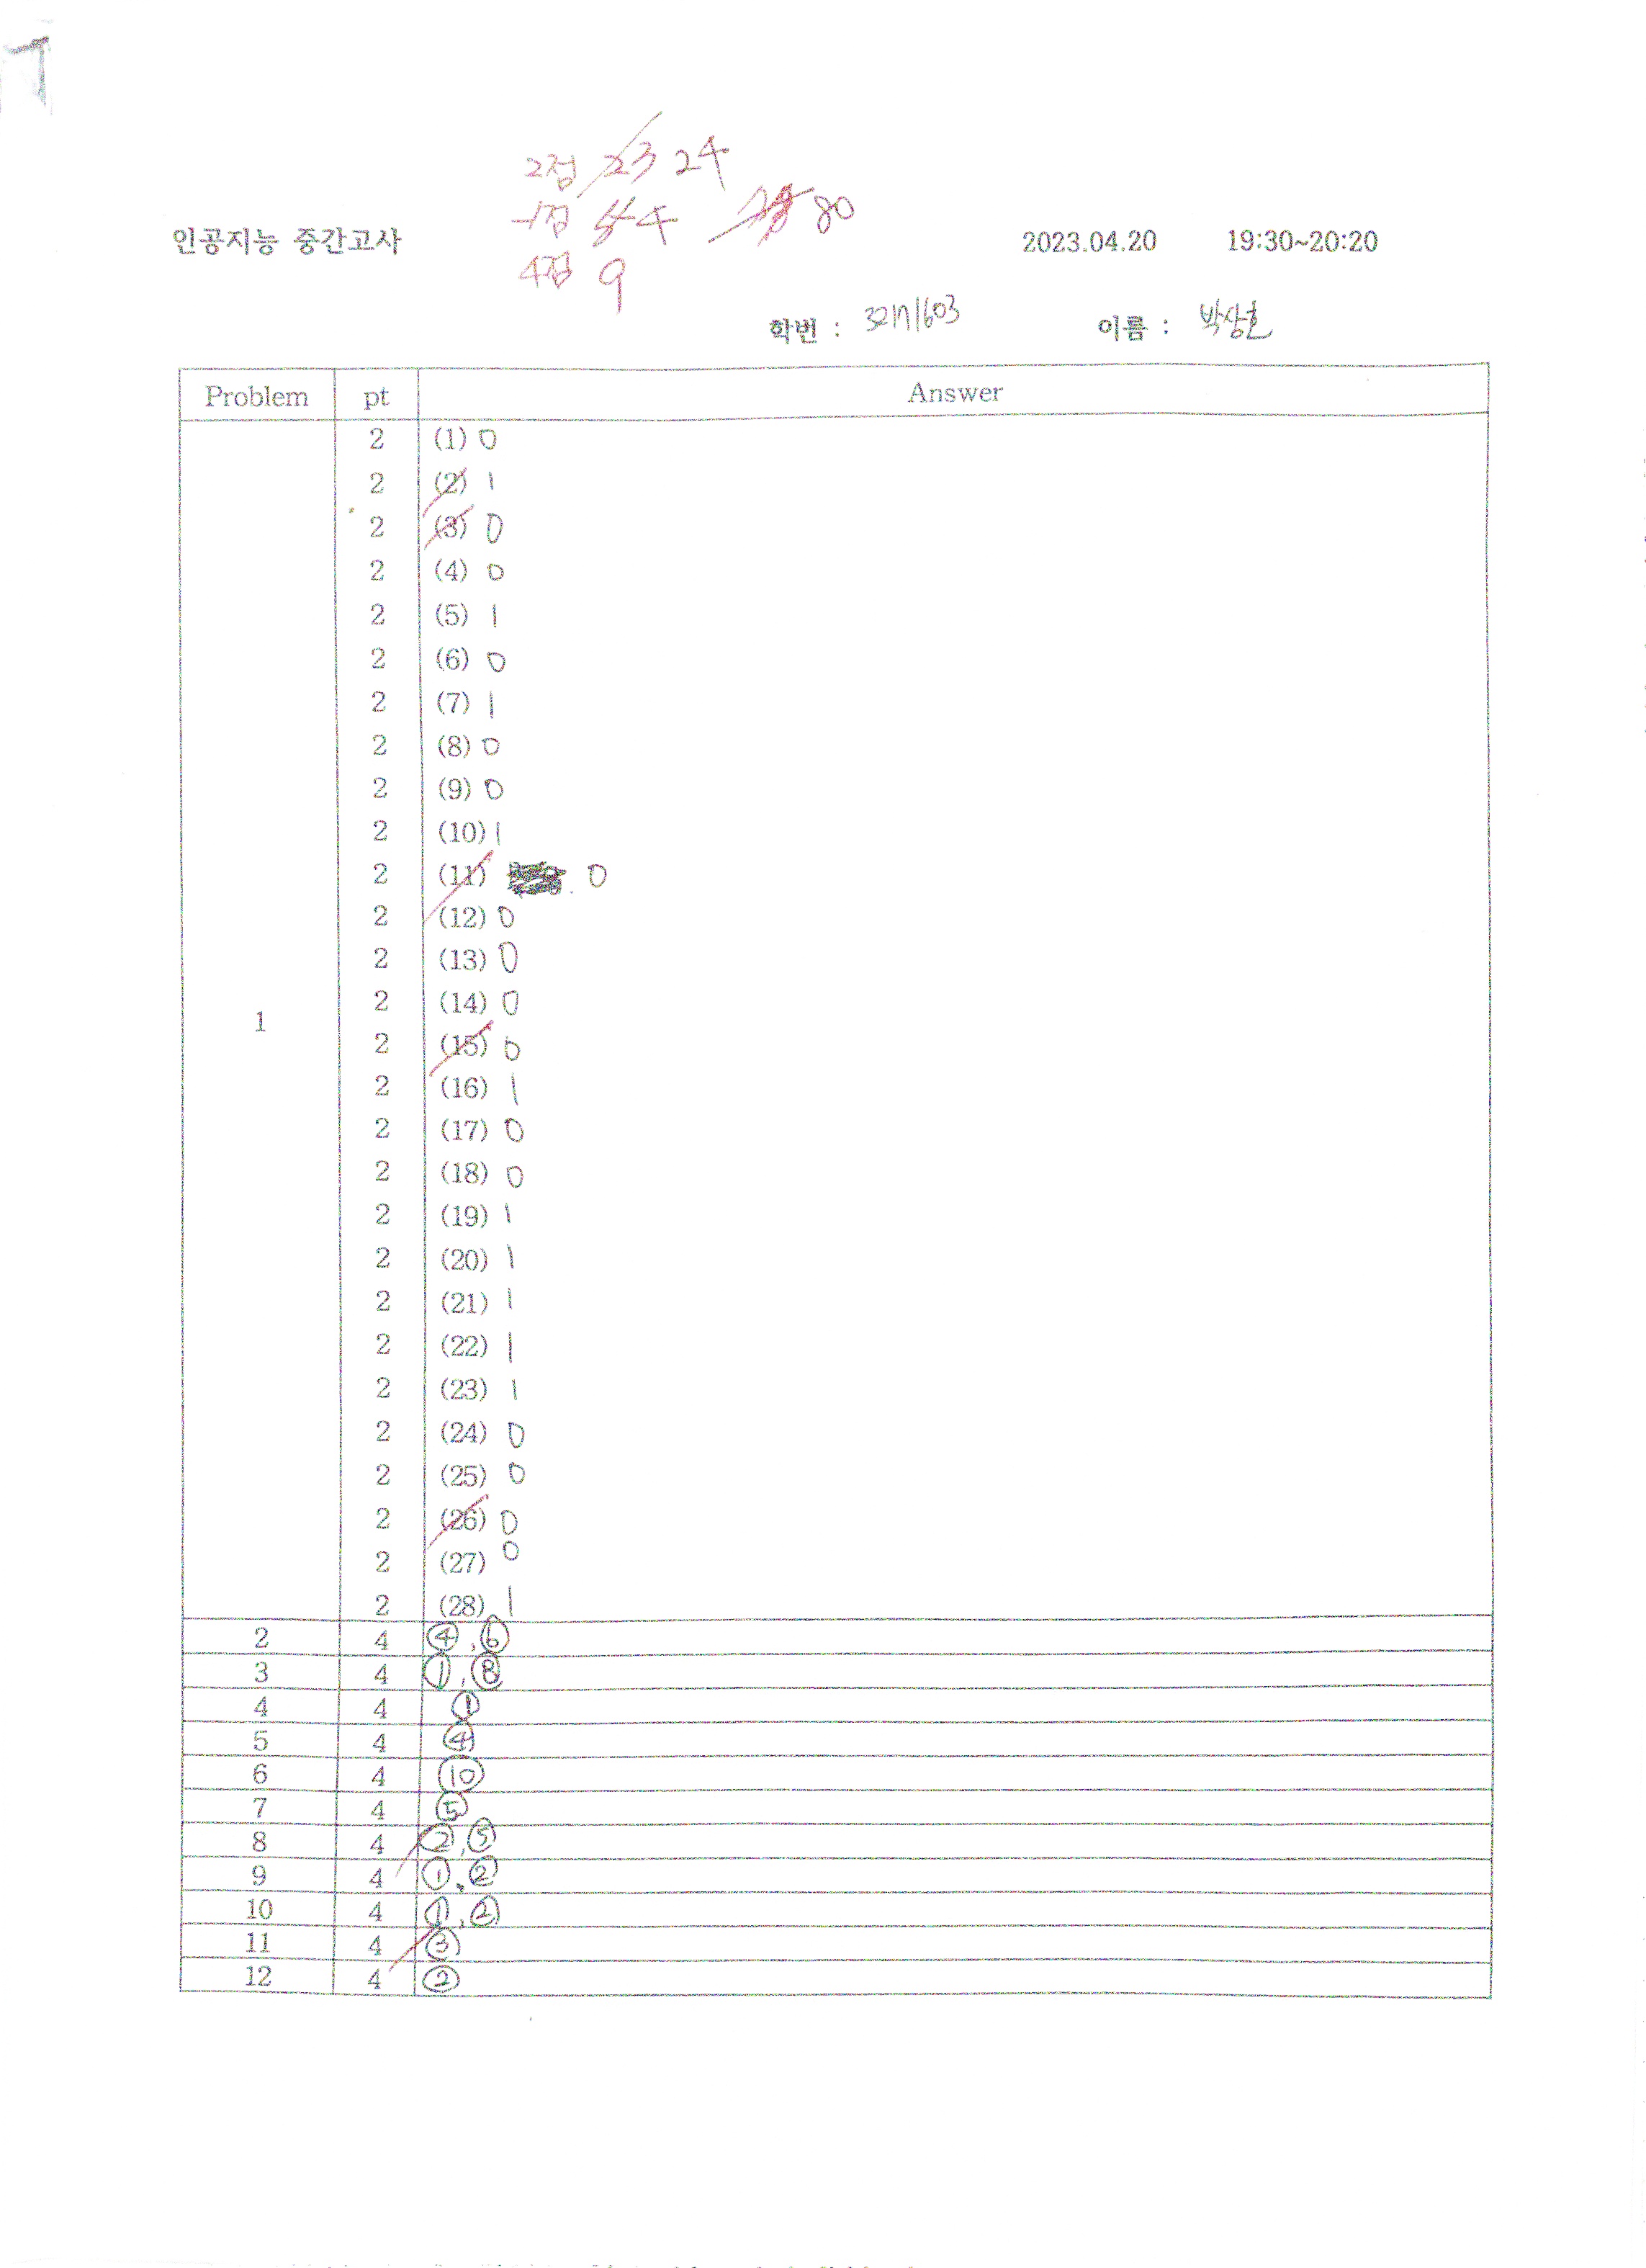 2점 23 24
-1점 5 4 78 80
4점 9
인공지능 중간고사 2023.04.20 19:30~20:20
학번 : 32171603 이름 : 박상호
Problem pt Answer
2 (1) 0
2 (2) 1
2 (3) 0
2 (4) 0
2 (5) 1
2 (6) 0
2 (7) 1
2 (8) 0
2 (9) 0
2 (10) 1
2 (11) 0
2 (12) 0
2 (13) 0
2 (14) 0
1
2 (15) 0
2 (16) 1
2 (17) 0
2 (18) 0
2 (19) 1
2 (20) 1
2 (21) 1
2 (22) 1
2 (23) 1
2 (24) 0
2 (25) 0
2 (26) 0
2 (27) 0
2 (28) 1
2 4 ④, ⑥
3 4 ①, ⑧
4 4 ①
5 4 ④
6 4 ⑩
7 4 ⑤
8 4 ②, ⑤
9 4 ①, ②
10 4 ①, ②
11 4 ③
12 4 ②